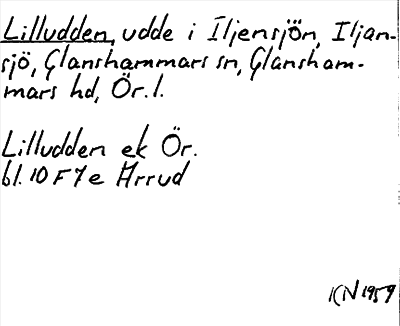 Lilludden, udde i Iljensjön, Iljan-
sjö, Glanshammars sn, Glansham-
mars hd, Ör. l.
Lilludden ek Ör.
bl. 10 F 7 e Arrud
KN 1959